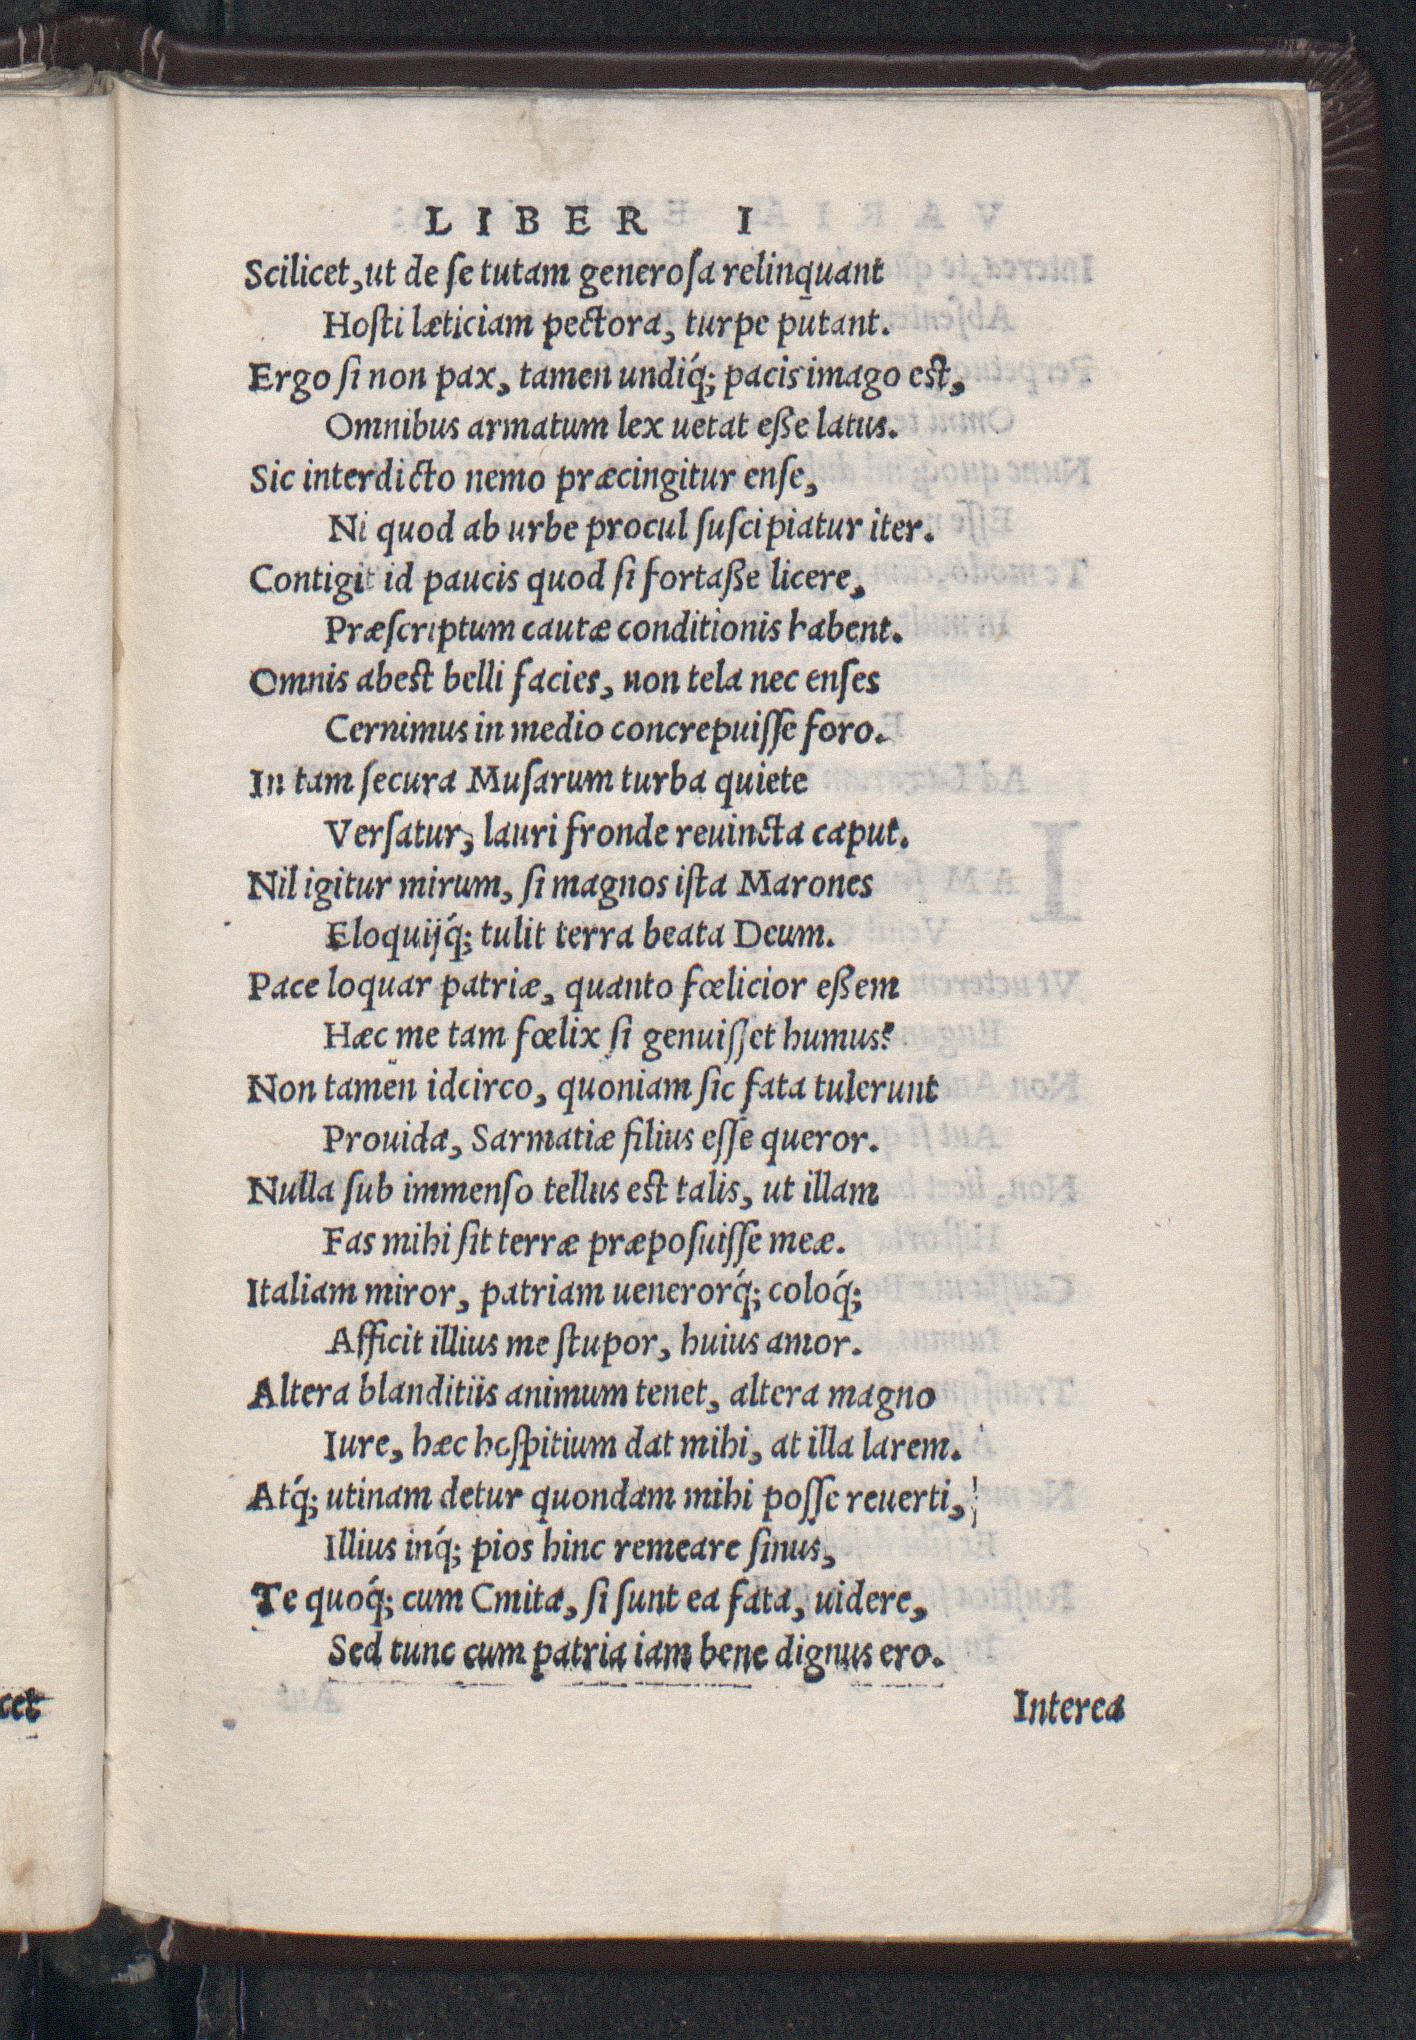 LIBER I
Scilicet, ut de ſe tutam generoſa relinquant
Hoſti læticiam pectora, turpe putant.
Ergo ſi non pax, tamen undiq́; pacis imago est,
Omnibus armatum lex uetat eße latus.
Sic interdicto nemo præcingitur enſe,
Ni quod ab urbe procul ſuſcipiatur iter.
Contigit id paucis quod ſi fortaße licere,
Præſcriptum cautæ conditionis habent.
Omnis abest belli facies, non tela nec enſes
Cernimus in medio concrepuiſſe foro.
In tam ſecura Muſarum turba quiete
Verſatur, lauri fronde reuincta caput.
Nil igitur mirum, ſi magnos iſta Marones
Eloquijq́; tulit terra beata Deum.
Pace loquar patriæ, quanto fœlicior eßem
Hæc me tam fœlix ſi genuiſſet humus?
Non tamen idcirco, quoniam ſic fata tulerunt
Prouida, Sarmatiæ filius eſſe queror.
Nulla ſub immenſo tellus est talis, ut illam
Fas mihi ſit terræ præpoſuiſſe meæ.
Italiam miror, patriam uenerorq́; coloq́;
Afficit illius me ſtupor, huius amor.
Altera blanditiis animum tenet, altera magno
Iure, hæc hoſpitium dat mihi, at illa larem.
Atq́; utinam detur quondam mihi poſſe reuerti,
Illius inq́; pios hinc remeare ſinus,
Te quoq́; cum Cmita, ſi ſunt ea fata, uidere,
Sed tunc cum patria iam bene dignus ero.
Interea